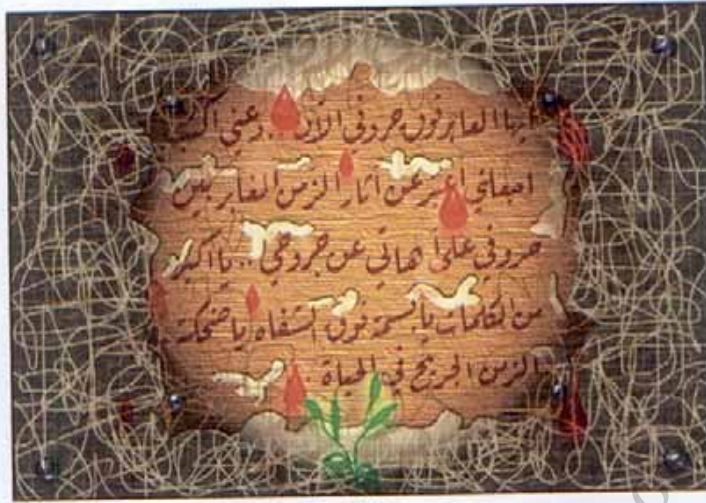 أيها العابر فوق حروفي الآن .. دعني أكتب
امهلني أعبر عن آثار الزمن الغابر بين
حروفي على آهاتي عن جروحي .. يا أكبر
من الكلمات يا بسمة فوق الشفاه يا ضحكة ..
الزمن الجريح في الحياة ..